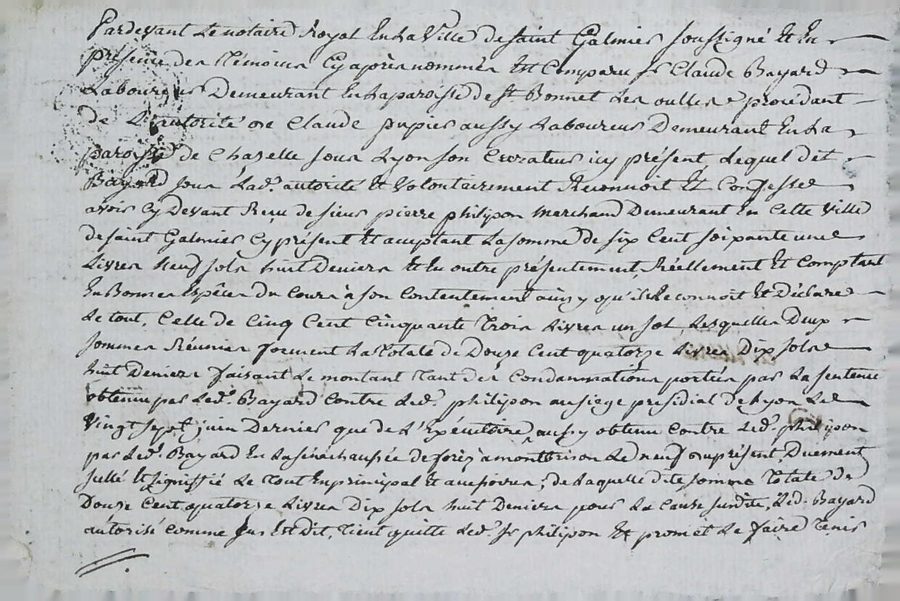 Pardevant Le notaire Royal En La Ville de saint Galmier soussigné Et En
présence des Témoins Cy après nommés Est Comparu sr Claude Bayard
Laboureur Demeurant En La paroisse de st Bonnet Les oulles procédant
de L'autorité de Claude pupier aussy Laboureur Demeurant En La
paroisse de Chazelle sous Lyon son Curateur icy présent Lequel dit
Bayard sous Lad. autorité Et Volontairement Reconnoit Et Confesse
avoir Cy Devant Reçu de sieur pierre philipon Marchand Demeurant En Cette Ville
de saint Galmier Cy présent Et acceptant La somme de six Cent soixante une
Livres neuf sols huit Deniers Et En outre présentement, Réellement Et Comptant
En Bonnes Espèces du Cours à son Contentement ainsy qu'il Reconnoit Et Déclare
Le tout, Celle de Cinq Cent Cinquante Trois Livres un sol, Lesquelles Deux
sommes Réunies forment La Totale de Douze Cent quatorze Livres Dix sols
huit Deniers faisant Le montant Tant des Condamnations portées par La sentence
obtenue par Led. Bayard Contre Led. philipon au siege présidial de Lyon Le
Vingt sept juin Dernier que de L'Exécutoire aussy obtenu Contre Led. philipon
par Led. Bayard En La sénéchaussée de forez à montbrison Le neuf du présent, Duement
sellé Et signiffié Le Tout En principal Et accessoires; de Laquelle dite somme Totale de
Douze Cent quatorze Livres Dix sols huit Deniers pour La Cause susdite, Led. Bayard
autorisé Comme sus Est Dit, Tient quitte Led. sr philipon Et promet Le faire Tenir